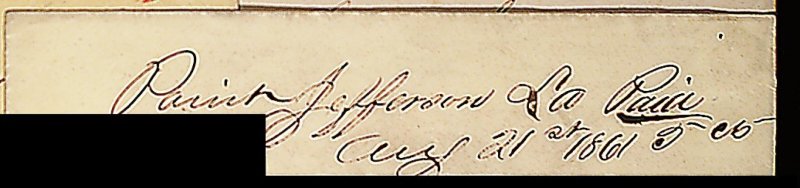 Parish Jefferson La Paid
Aug 21st 1861 5 cts